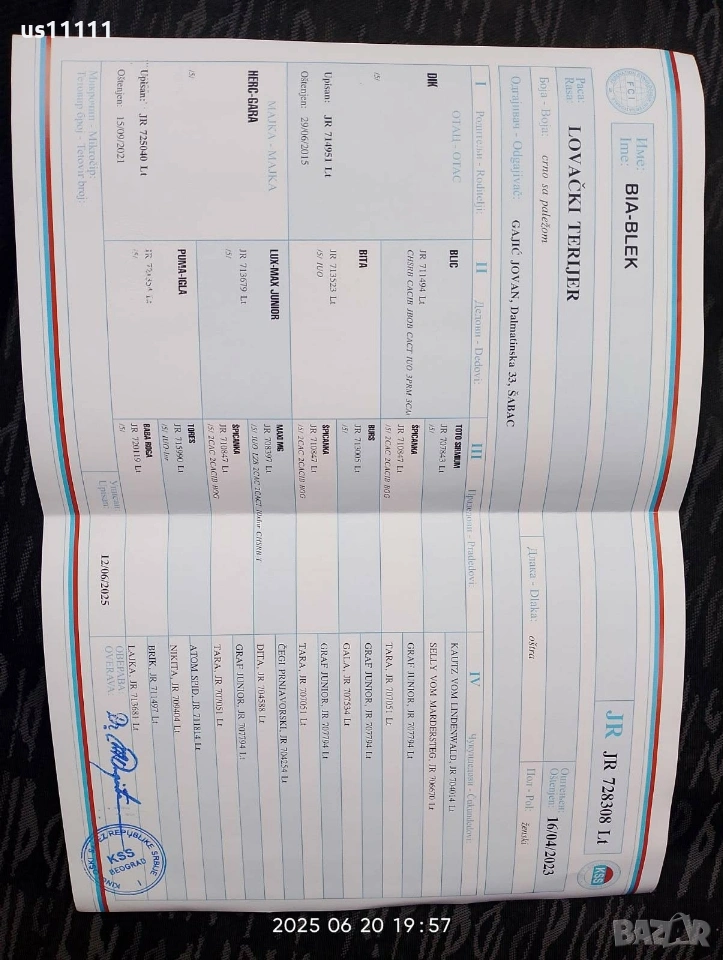 us11111
FCI
Име:
Ime: BIA-BLEK
JR JR 728308 Lt
KSS
Раса:
Rasa: LOVAČKI TERIJER
Оштењен:
Ošenjen: 16/04/2023
Боја - Boja: crno sa paležom
Длака - Dlaka: oštra
Пол - Pol: ženski
Одгајивач - Odgajivač: GAJIĆ JOVAN, Dalmatinska 33, ŠABAC
I Родитељи - Roditelji:
II Дедови - Dedovi:
III Прадедови - Pradedovi
IV Чукундедови - Čukundedovi
ОТАЦ - OTAC
DIK
/5/
Upisan: JR 714951 Lt
Oštenjen: 29/06/2015
МАЈКА - MAJKA
HERC-GARA
/5/
Upisan: JR 725040 Lt
Oštenjen: 15/09/2021
Микрочип - Mikročip:
Тетовир број - Tetovir broj:
BLIC
JR 711494 Lt
BITA
JR 713523 Lt
/5/ IUO
LUX-MAX JUNIOR
JR 713679 Lt
/5/
PUMA-IGLA
/5/
TOTO SIRMIUM
JR 707843 Lt
/5/
ŠPICANKA
JR 710847 Lt
/5/ 2CAC 2CACIB BOG
BURS
JR 713005 Lt
/5/
ŠPICANKA
JR 710847 Lt
/5/ 2CAC 2CACIB BOG
MAXI MG
JR 708397 Lt
ŠPICANKA
JR 710847 Lt
/5/ 2CAC 2CACIB BOG
TOMES
JR 715990 Lt
BABA ROGA
JR 720119 Lt
/5/
KAUTZ VOM LINDENWALD, JR 704014 Lt
SELLY VOM MARDERSTEG, JR 706670 Lt
GRAF JUNIOR, JR 707794 Lt
TARA, JR 707051 Lt
GRAF JUNIOR, JR 707794 Lt
GALA, JR 707534 Lt
GRAF JUNIOR, JR 707794 Lt
TARA, JR 707051 Lt
ČEGI PRNJAVORSKI, JR 704254 Lt
DITA, JR 704588 Lt
GRAF JUNIOR, JR 707794 Lt
TARA, JR 707051 Lt
ATOM SPID, JR 711814 Lt
NIKITA, JR 709404 Lt
BRIK, JR 711497 Lt
LAJKA, JR 713681 Lt
Уписан:
Upisan: 12/06/2025
ОВЕРАВА
OVERAVA:
REPUBLIKE SRBIJE
KSS
BEOGRAD
2025 06 20 19:57
BAZAR